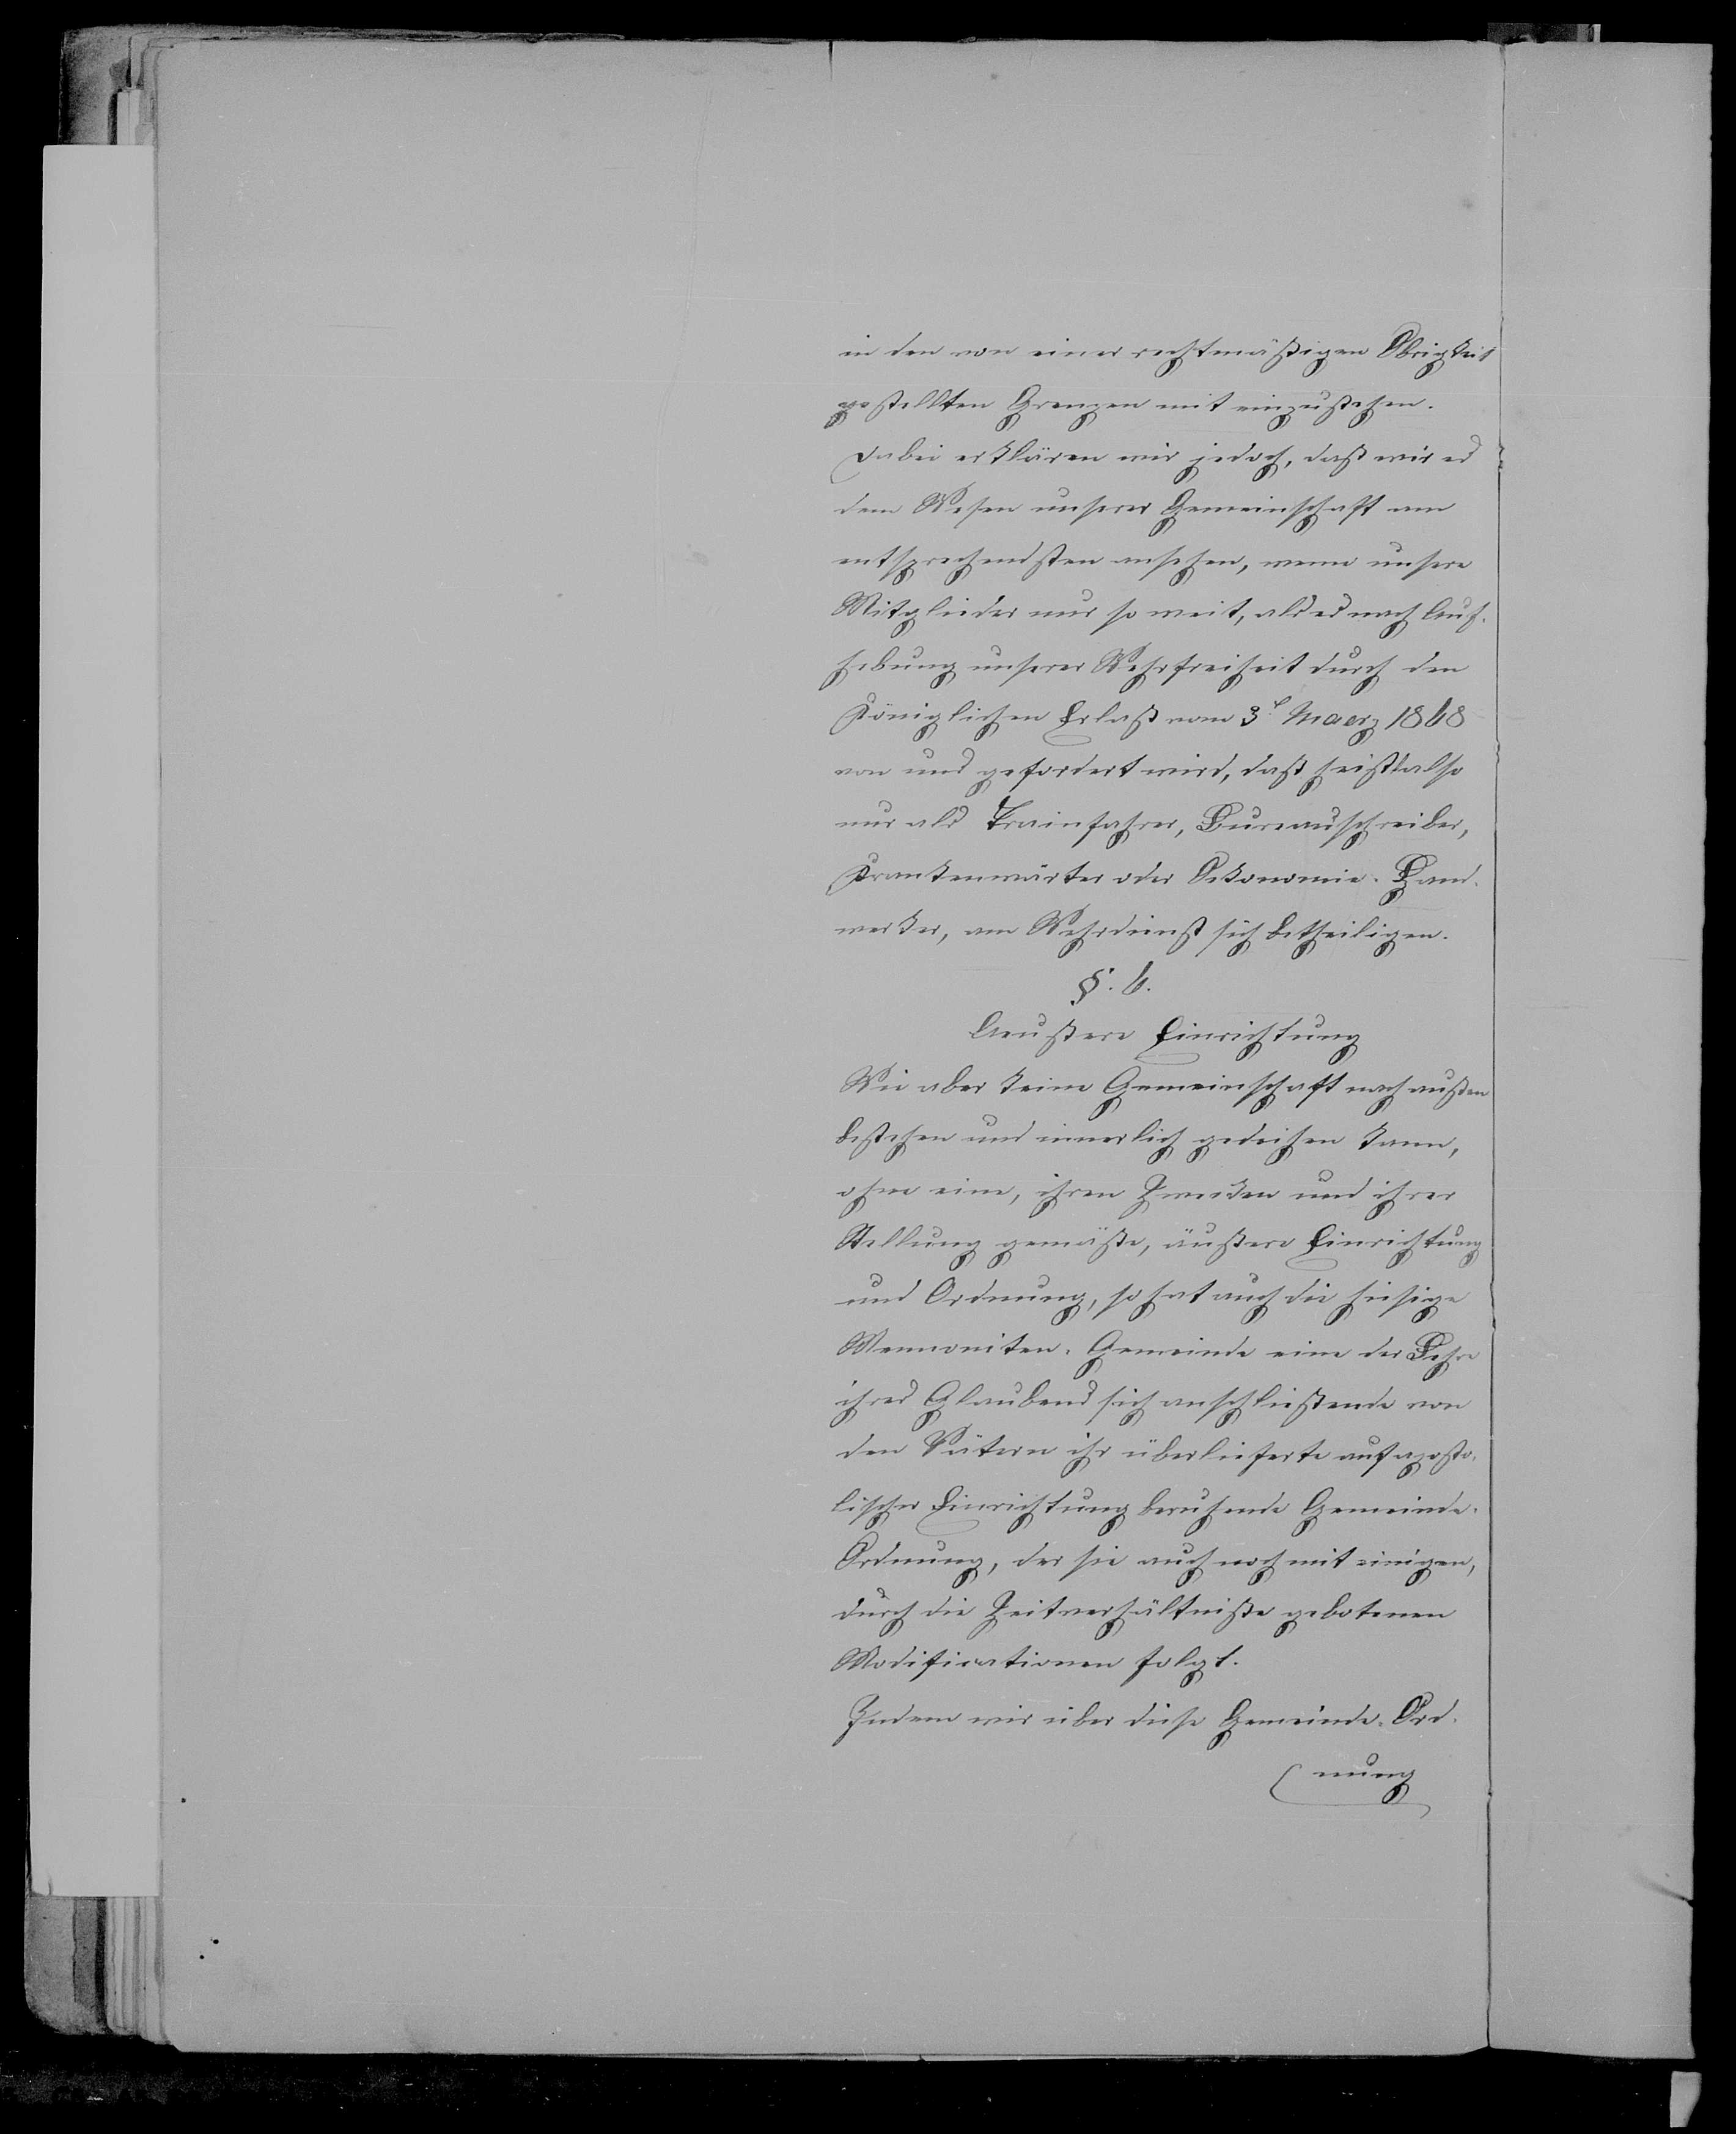 in den von einer rechtmäßigen Obrigkeit
gestellten Grenzen mit einzustehen.
Dabei erklären wir jedoch, daß wir es
dem Wesen unserer Gemeinschaft am
entsprechendsten ansehen, wenn unsere
Mitglieder nur so weit, als es nach Auf-
hebung unserer Wehrfreiheit durch den
Königlichen Erlaß vom 3t Maerz 1868
von uns gefordert wird, daß heißt also
nur als Trainfahrer, Bureauschreiber,
Krankenwärter oder Oekonomie-Hand-
werker, am Wehrdienst sich betheiligen.
§. 6.
Aeußere Einrichtung
Wie aber keine Gemeinschaft nach außen
bestehen und innerlich gedeihen kann,
ohne eine, ihren Zwecken und ihrer
Stellung gemäße, äußere Einrichtung
und Ordnung, so hat auch die hiesige
Mennoniten-Gemeinde eine der Lehre
ihres Glaubens sich anschließende von
den Vätern ihr überlieferte auf aposto-
lischer Einrichtung beruhende Gemeinde-
Ordnung, der sie auch noch mit einigen,
durch die Zeitverhältniße gebotenen
Modificationen folgt.
Indem wir über diese Gemeinde-Ord-
nung